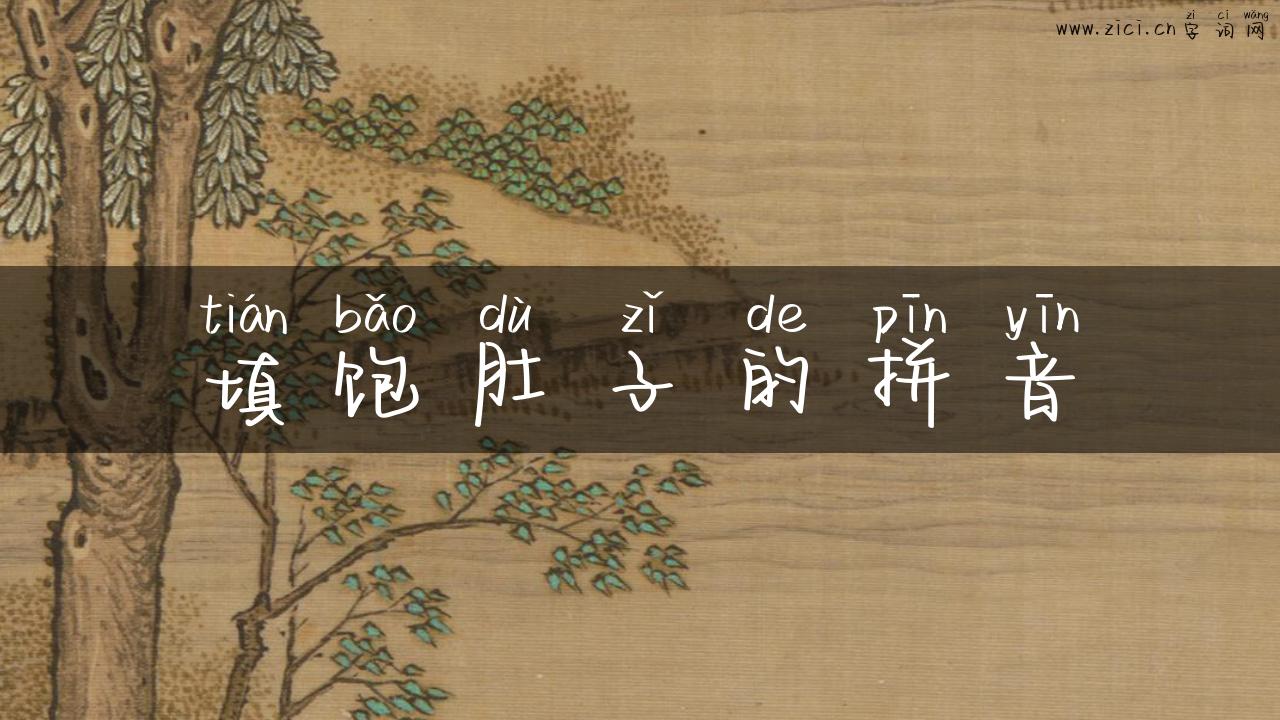 zì cí wǎng
www.zici.cn 字词网
tián bǎo dù zǐ de pīn yīn
填饱肚子的拼音